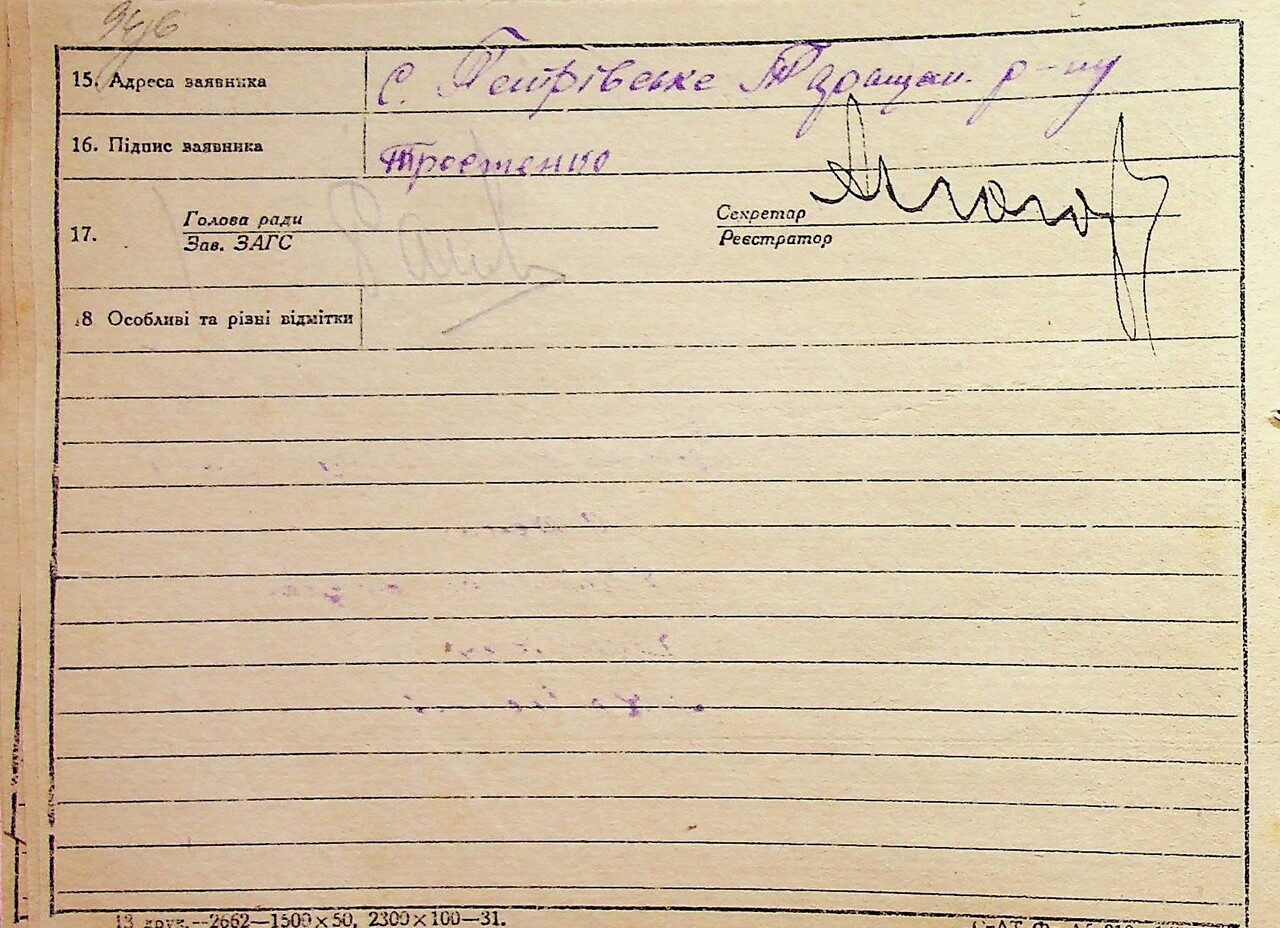 15. Адреса заявника с. Петрівське Таращан. р-ну
16. Підпис заявника Тростенко
17. Голова ради Секретар
Зав. ЗАГС Реєстратор
18 Особливі та різні відмітки
13 друк.—2662—1500×50, 2300×100—31.